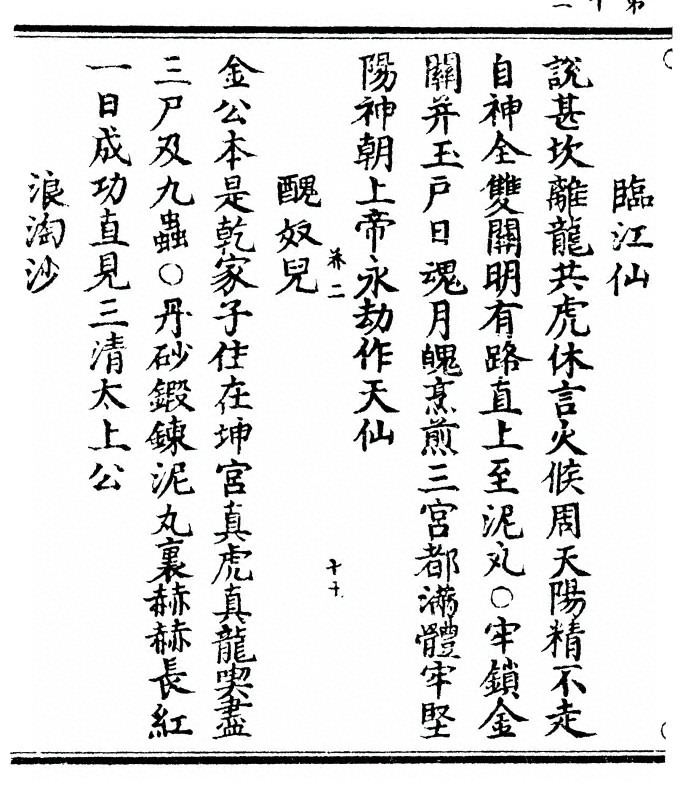 臨江仙
說甚坎離龍共虎休言火候周天陽精不走
自神全雙關明有路直上至泥丸○牢鎖金
關并玉戶日魂月魄烹煎三宮都滿體牢堅
陽神朝上帝永劫作天仙
卷二
十十
醜奴兒
金公本是乾家子住在坤宮真虎真龍喫盡
三尸及九蟲○丹砂鍛鍊泥丸裏赫赫長紅
一日成功直見三清太上公
浪淘沙